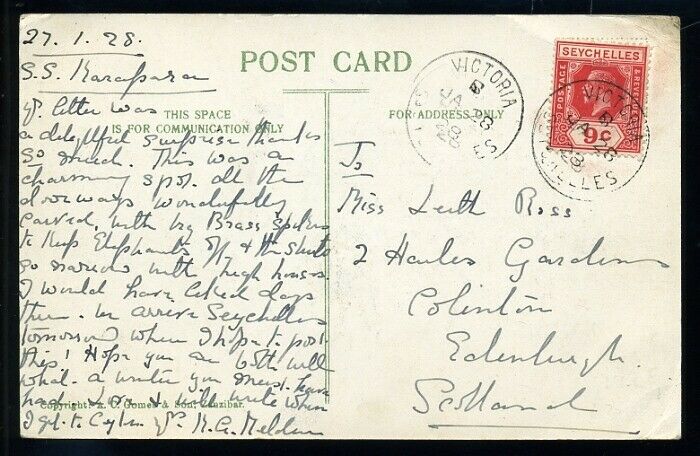 27.1.28.
S.S. Karapara
POST CARD
THIS SPACE
IS FOR COMMUNICATION ONLY
FOR ADDRESS ONLY
Yr. letter was
a delightful surprise thanks
so much. This was a
charming spot. all the
doorways wonderfully
carved, with big Brass spikes
to keep Elephants off & the streets
so narrow with high houses.
I would have liked days
there. We arrive Seychelles
tomorrow when I hope to post
this! Hope you are both well
what a winter you must have
had. Love & will write when
I get to Ceylon Yrs.
Copyright: A. C. Gomes & Son, Zanzibar.
To
Miss Leith Ross
2 Gardens
Colinton
Edinburgh.
Scotland
VICTORIA
SEYCHELLES
POSTAGE
& REVENUE
9c
VICTORIA
SEYCHELLES